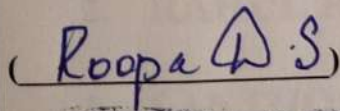 ( Roopa D.S )